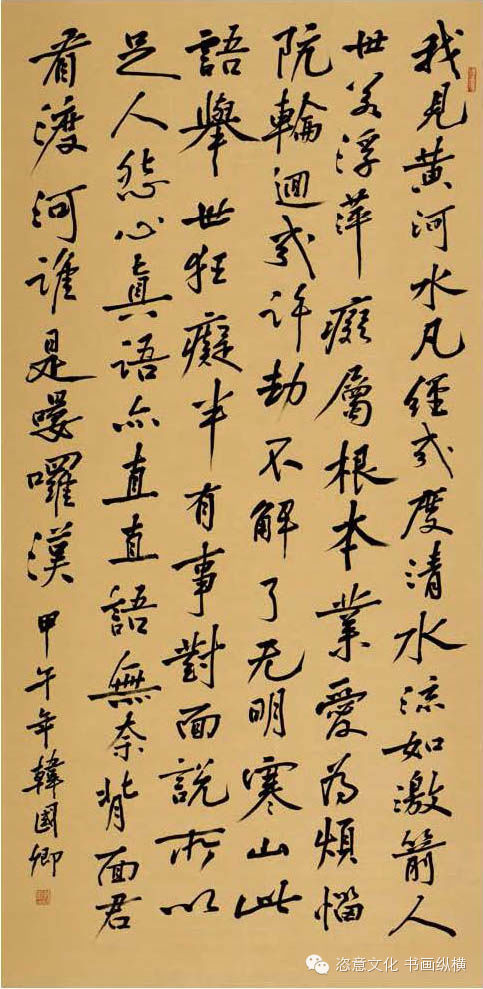 我見黃河水凡經幾度清水流如激箭人
世若浮萍癡屬根本業愛為煩惱
阬輪迴幾許劫不解了无明寒山此
語舉世狂癡半有事對面說所以
足人怨心真語亦直直語無奈背面君
看渡河誰是嘍囉漢 甲午年韓國卿
恣意文化 书画纵横